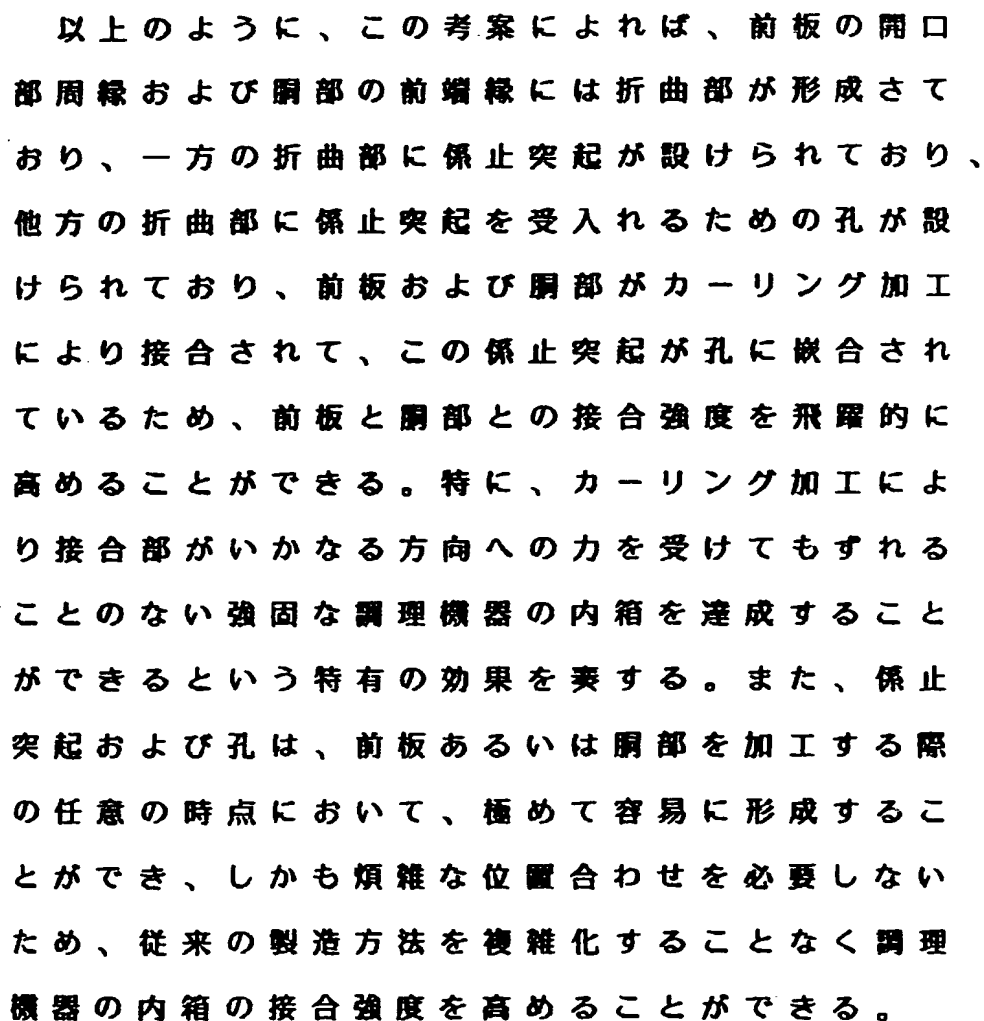 以上のように、この考案によれば、前板の開口
部周縁および胴部の前端縁には折曲部が形成さて
おり、一方の折曲部に係止突起が設けられており、
他方の折曲部に係止突起を受入れるための孔が設
けられており、前板および胴部がカーリング加工
により接合されて、この係止突起が孔に嵌合され
ているため、前板と胴部との接合強度を飛躍的に
高めることができる。特に、カーリング加工によ
り接合部がいかなる方向への力を受けてもずれる
ことのない強固な調理機器の内箱を達成すること
ができるという特有の効果を奏する。また、係止
突起および孔は、前板あるいは胴部を加工する際
の任意の時点において、極めて容易に形成するこ
とができ、しかも煩雑な位置合わせを必要しない
ため、従来の製造方法を複雑化することなく調理
機器の内箱の接合強度を高めることができる。